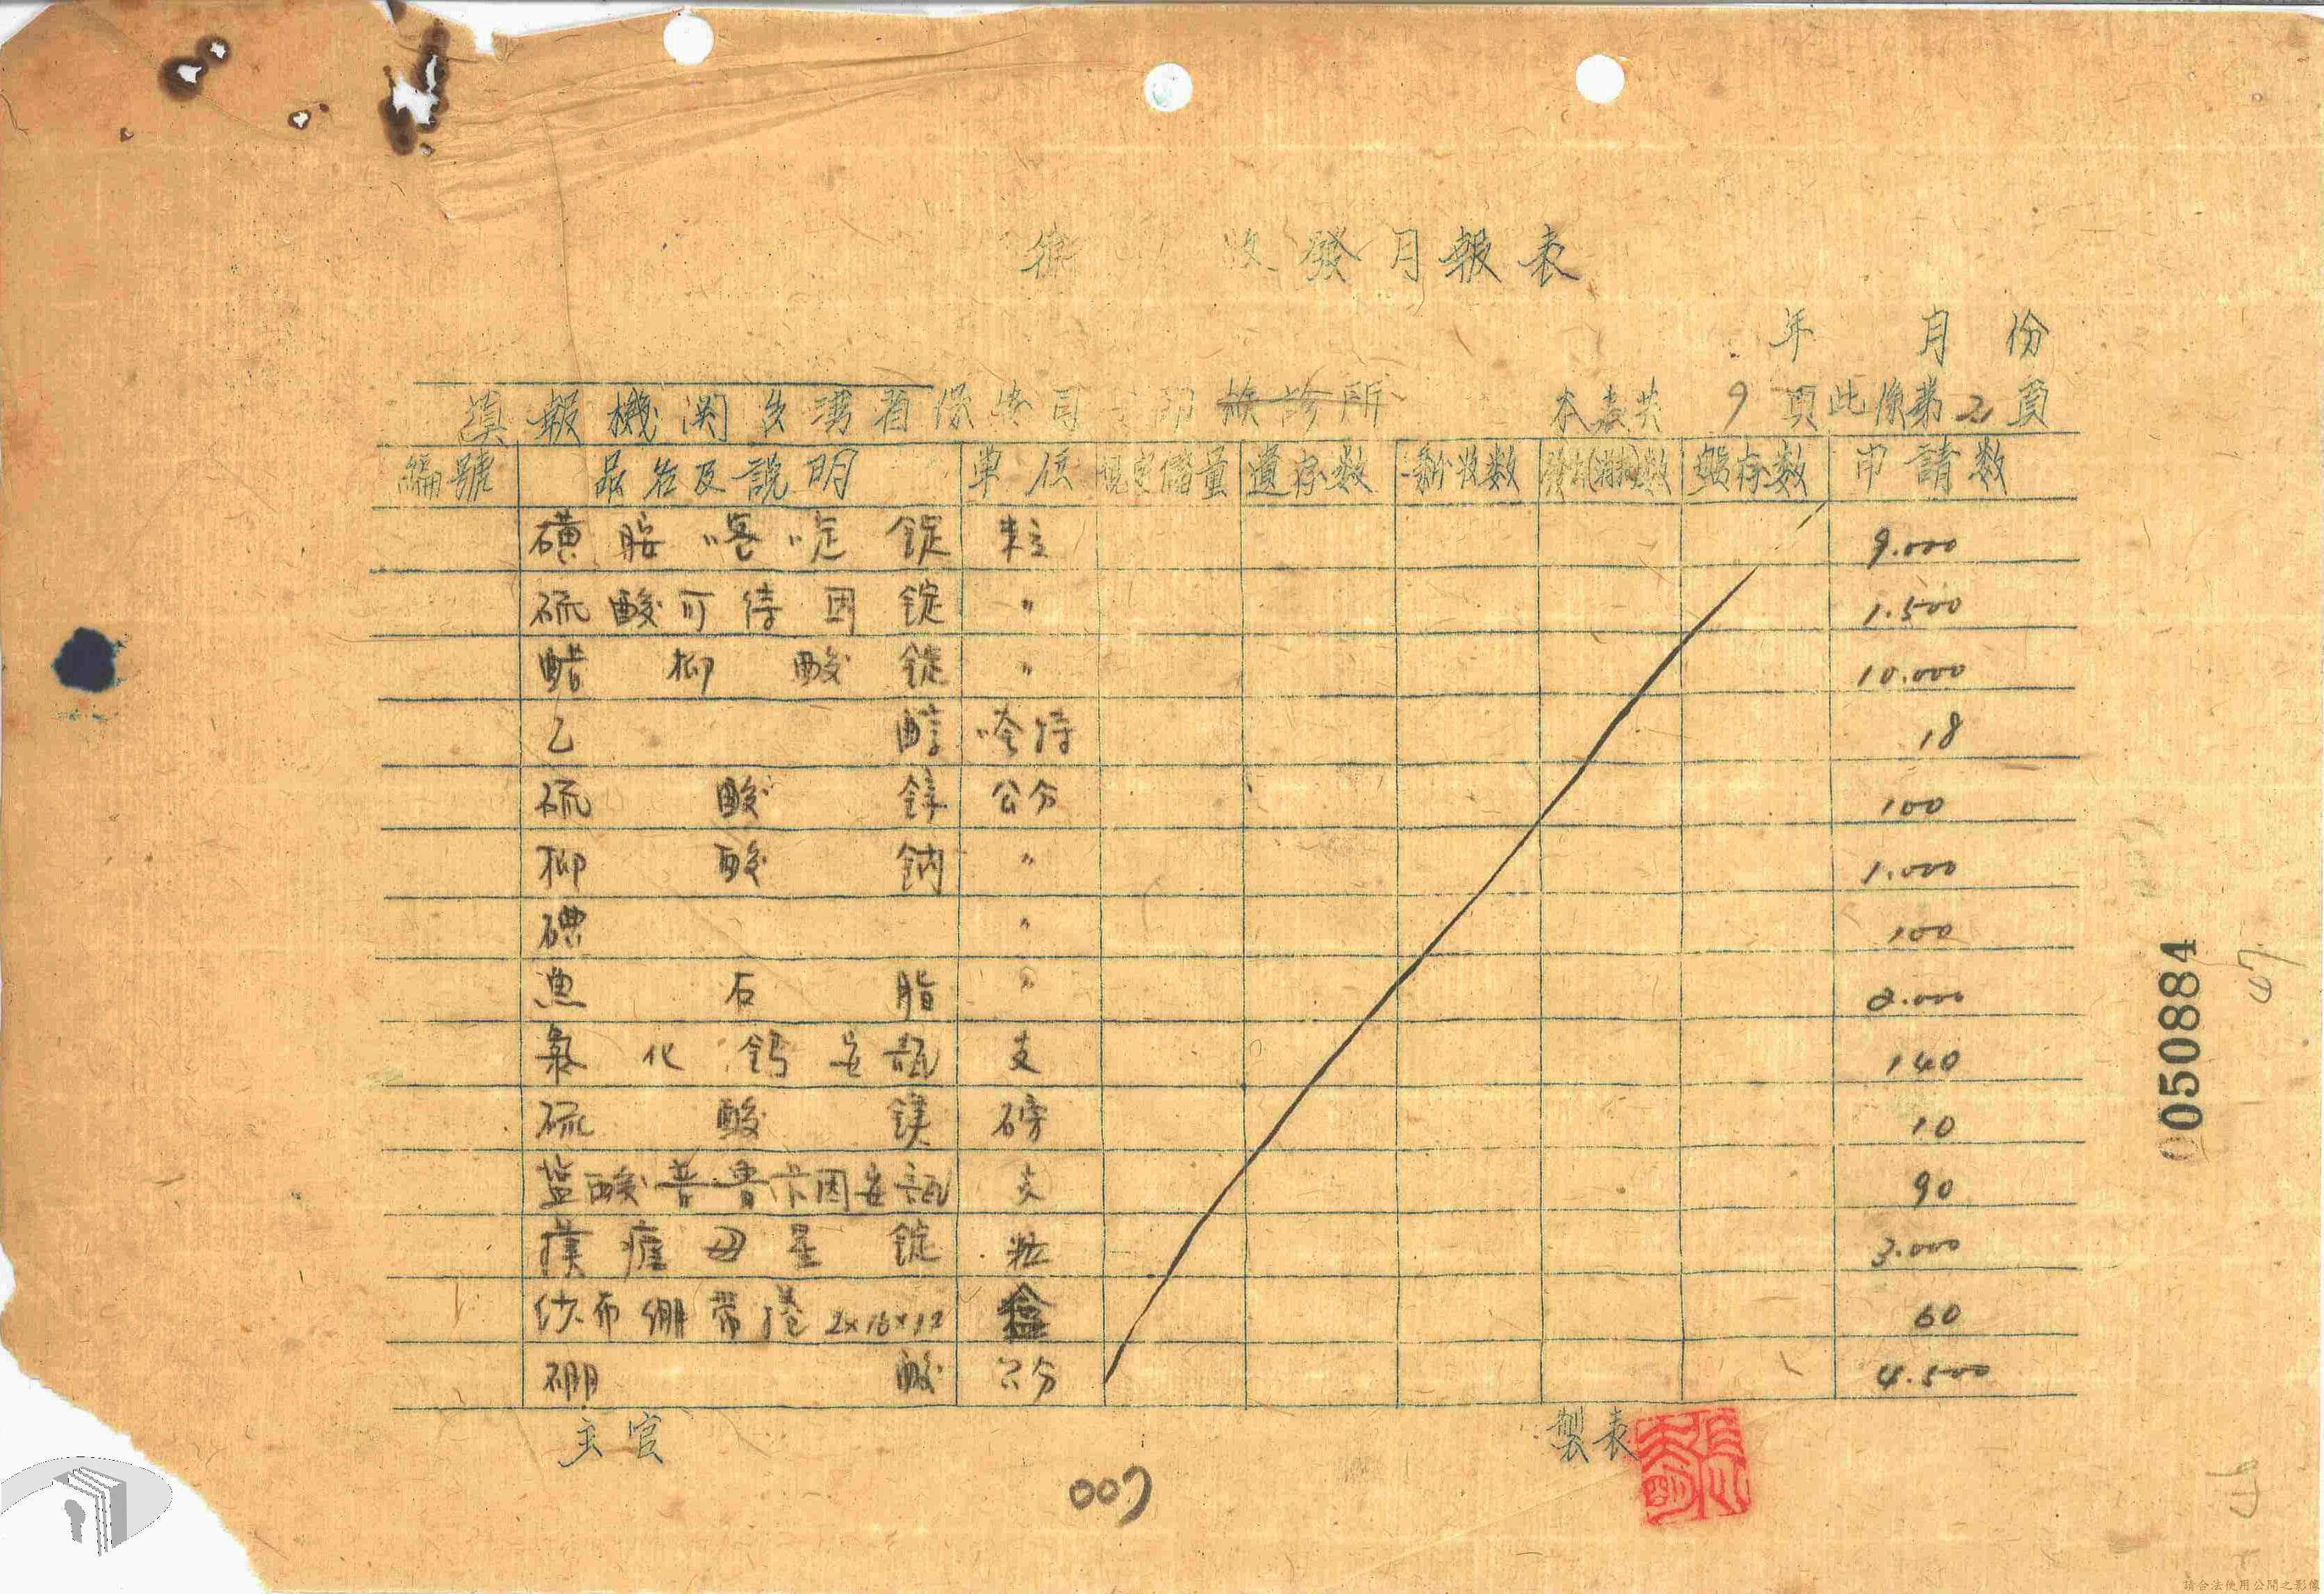 收發月報表
年 月 份
填報機関台灣省保 司 部 診所 本表共 9 頁此係第 2 頁
編號 品名及說明 單位 規定儲量 遺存数 新收数 發出(消耗)数 點存数 申請数
磺胺嘧啶錠 粒 9.000
硫酸可待因錠 〃 1.500
醋柳酸錠 〃 10.000
乙醇 唥特 18
硫酸鋅 公分 100
柳酸鈉 〃 1.000
碘 〃 100
魚石脂 〃 2.000
氯化鈣安瓿 支 140
硫酸鎂 磅 10
盐酸普魯卡因安瓿 支 90
撲瘧母星錠 粒 3.000
纱布绷帶捲 2×16×12 盒 60
硼酸 公分 4.500
主官 製表
007
0050884
47
請合法使用公開之影像